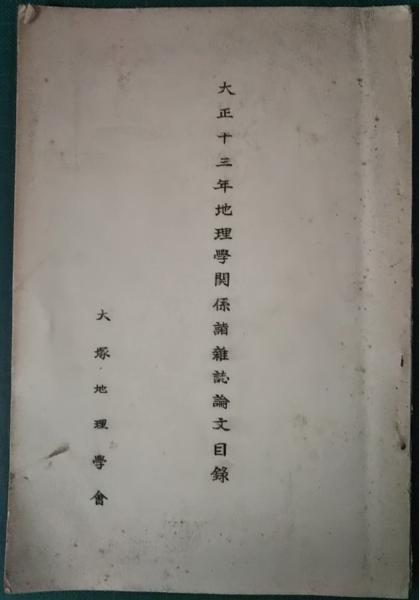 大正十三年地理學関係諸雜誌論文目録
大塚地理學會